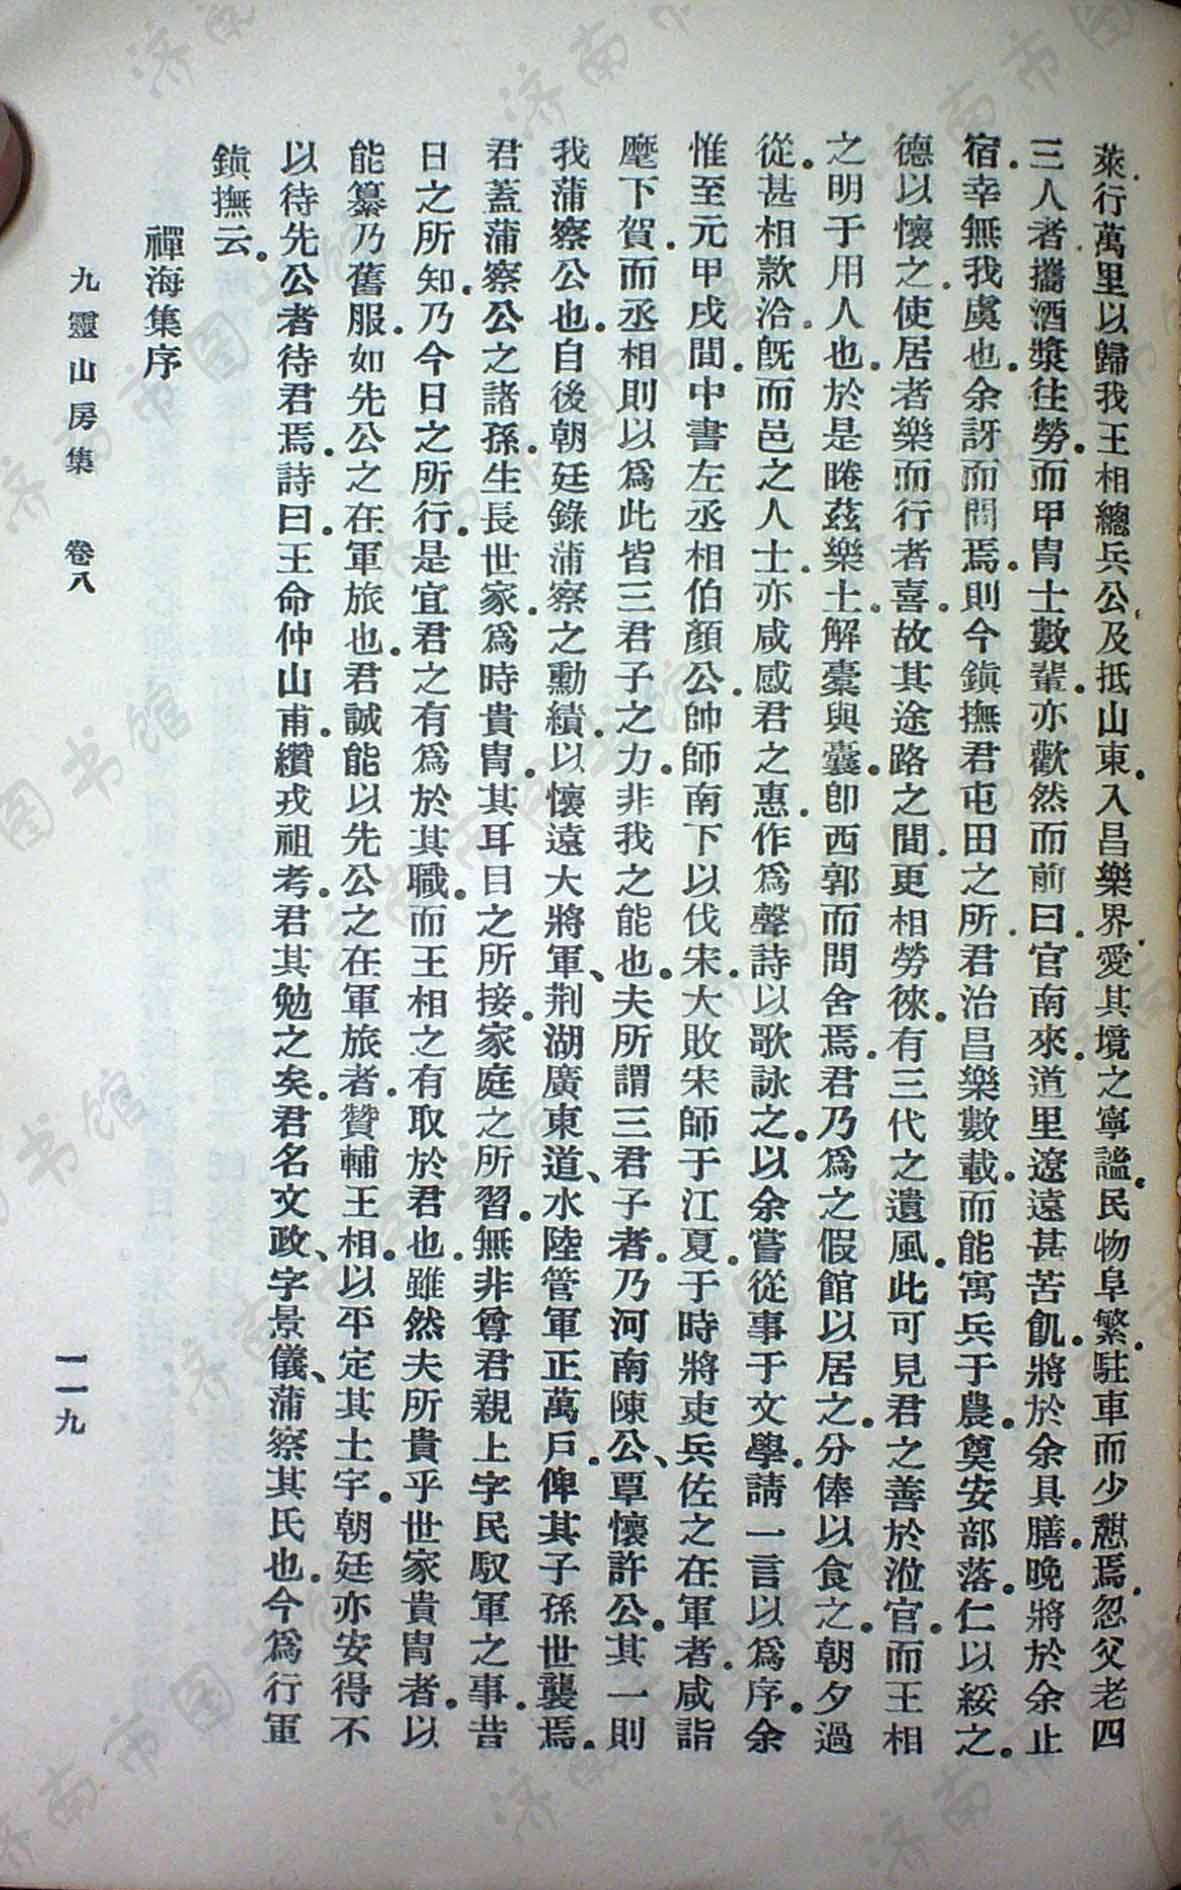 萊。行萬里以歸我王相總兵公。及抵山東。入昌樂界。愛其境之寧謐。民物阜繁。駐車而少憩焉。忽父老四
三人者。攜酒漿往勞。而甲冑士數輩。亦歡然而前曰。官南來。道里遼遠甚苦飢。將於余具膳。晚將於余止
宿。幸無我虞也。余訝而問焉。則今鎭撫君屯田之所。君治昌樂數載。而能寓兵于農。奠安部落。仁以綏之。
德以懷之。使居者樂而行者喜。故其途路之間。更相勞徠。有三代之遺風。此可見君之善於涖官。而王相
之明于用人也。於是睠茲樂土。解橐與囊。卽西郭而問舍焉。君乃爲之假館以居之。分俸以食之。朝夕過
從。甚相款洽。旣而邑之人士。亦咸感君之惠。作爲聲詩以歌詠之。以余嘗從事于文學。請一言以爲序。余
惟至元甲戌間。中書左丞相伯顏公。帥師南下以伐宋。大敗宋師于江夏。于時將吏兵佐之在軍者。咸詣
麾下賀。而丞相則以爲此皆三君子之力。非我之能也。夫所謂三君子者。乃河南陳公、覃懷許公。其一則
我蒲察公也。自後朝廷錄蒲察之勳績。以懷遠大將軍、荆湖廣東道、水陸管軍正萬戶。俾其子孫世襲焉。
君蓋蒲察公之諸孫。生長世家。爲時貴冑。其耳目之所接。家庭之所習。無非尊君親上字民馭軍之事。昔
日之所知。乃今日之所行。是宜君之有爲於其職。而王相之有取於君也。雖然夫所貴乎世家貴冑者。以
能纂乃舊服。如先公之在軍旅也。君誠能以先公之在軍旅者。贊輔王相。以平定其土宇。朝廷亦安得不
以待先公者待君焉。詩曰。王命仲山甫。纘戎祖考。君其勉之矣。君名文政、字景儀、蒲察其氏也。今爲行軍
鎭撫云。
禪海集序
九靈山房集　卷八
一一九